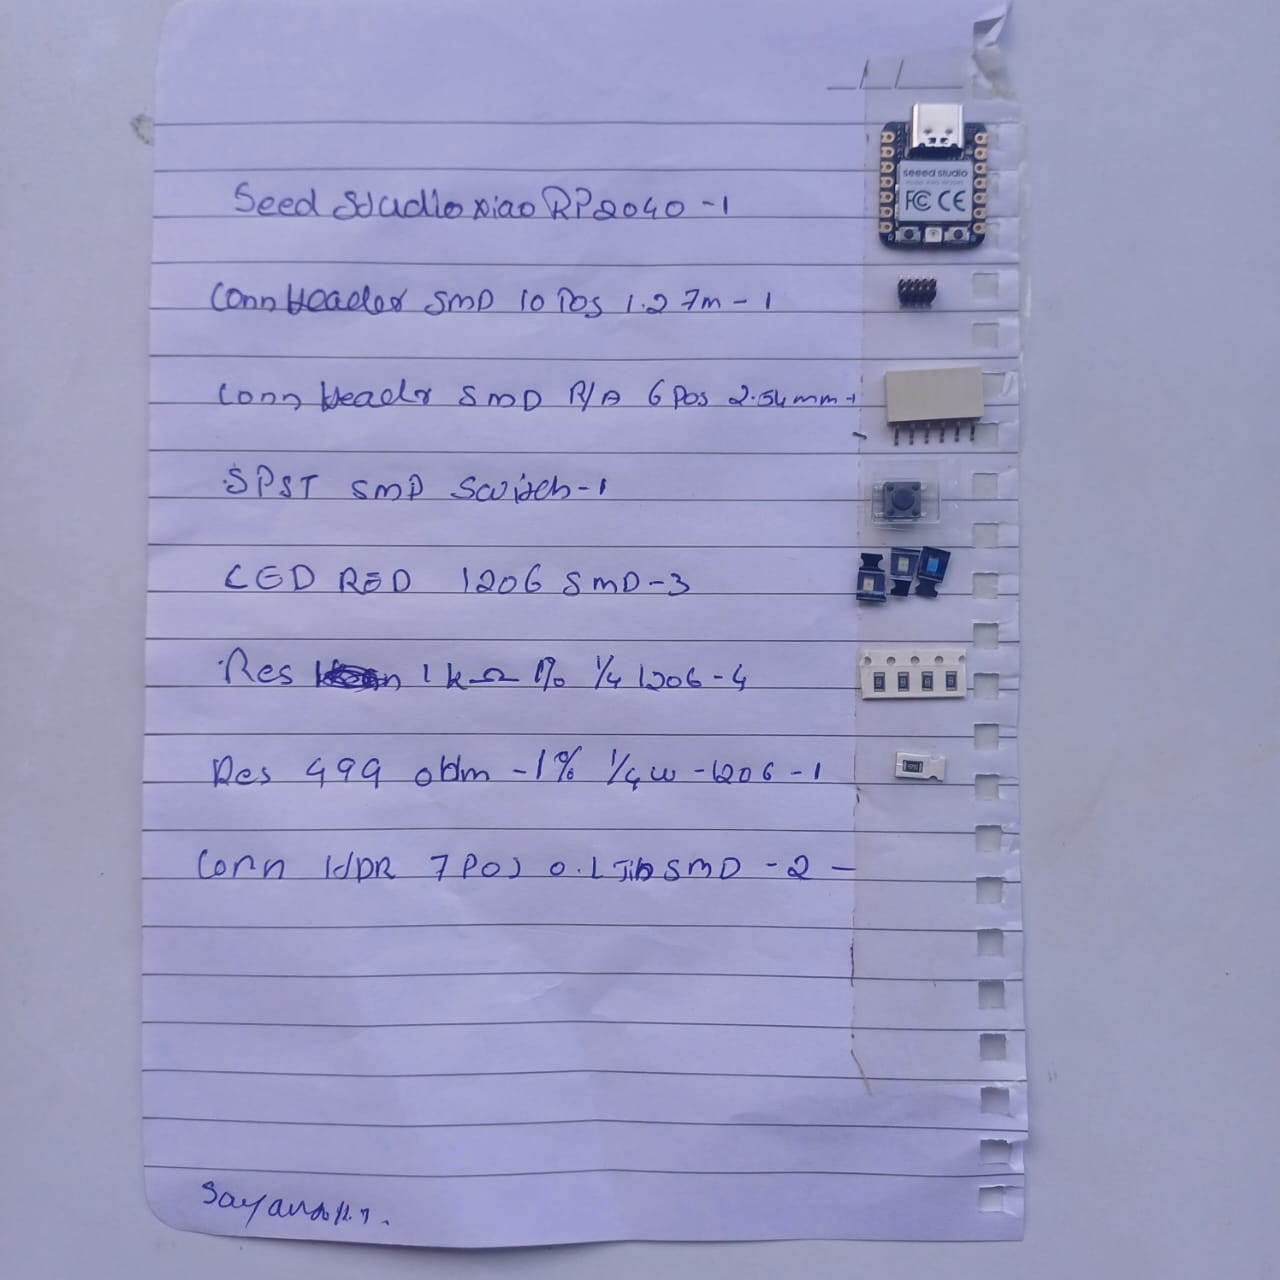 __/__/____
seeed studio
FC CE
Seed Studio xiao RP2040 - 1
Conn Header SMD 10 Pos 1.27m - 1
Conn Header SMD R/A 6 Pos 2.54mm - 1
SPST SMD Switch - 1
LED RED 1206 SMD - 3
Res 1kΩ 1% 1/4 1206 - 4
Res 499 ohm - 1% 1/4w - 1206 - 1
Conn HDR 7 POS 0.1 Tin SMD - 2 -